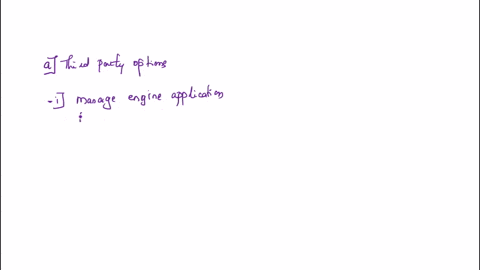 a] Third party options
-i] manage engine application